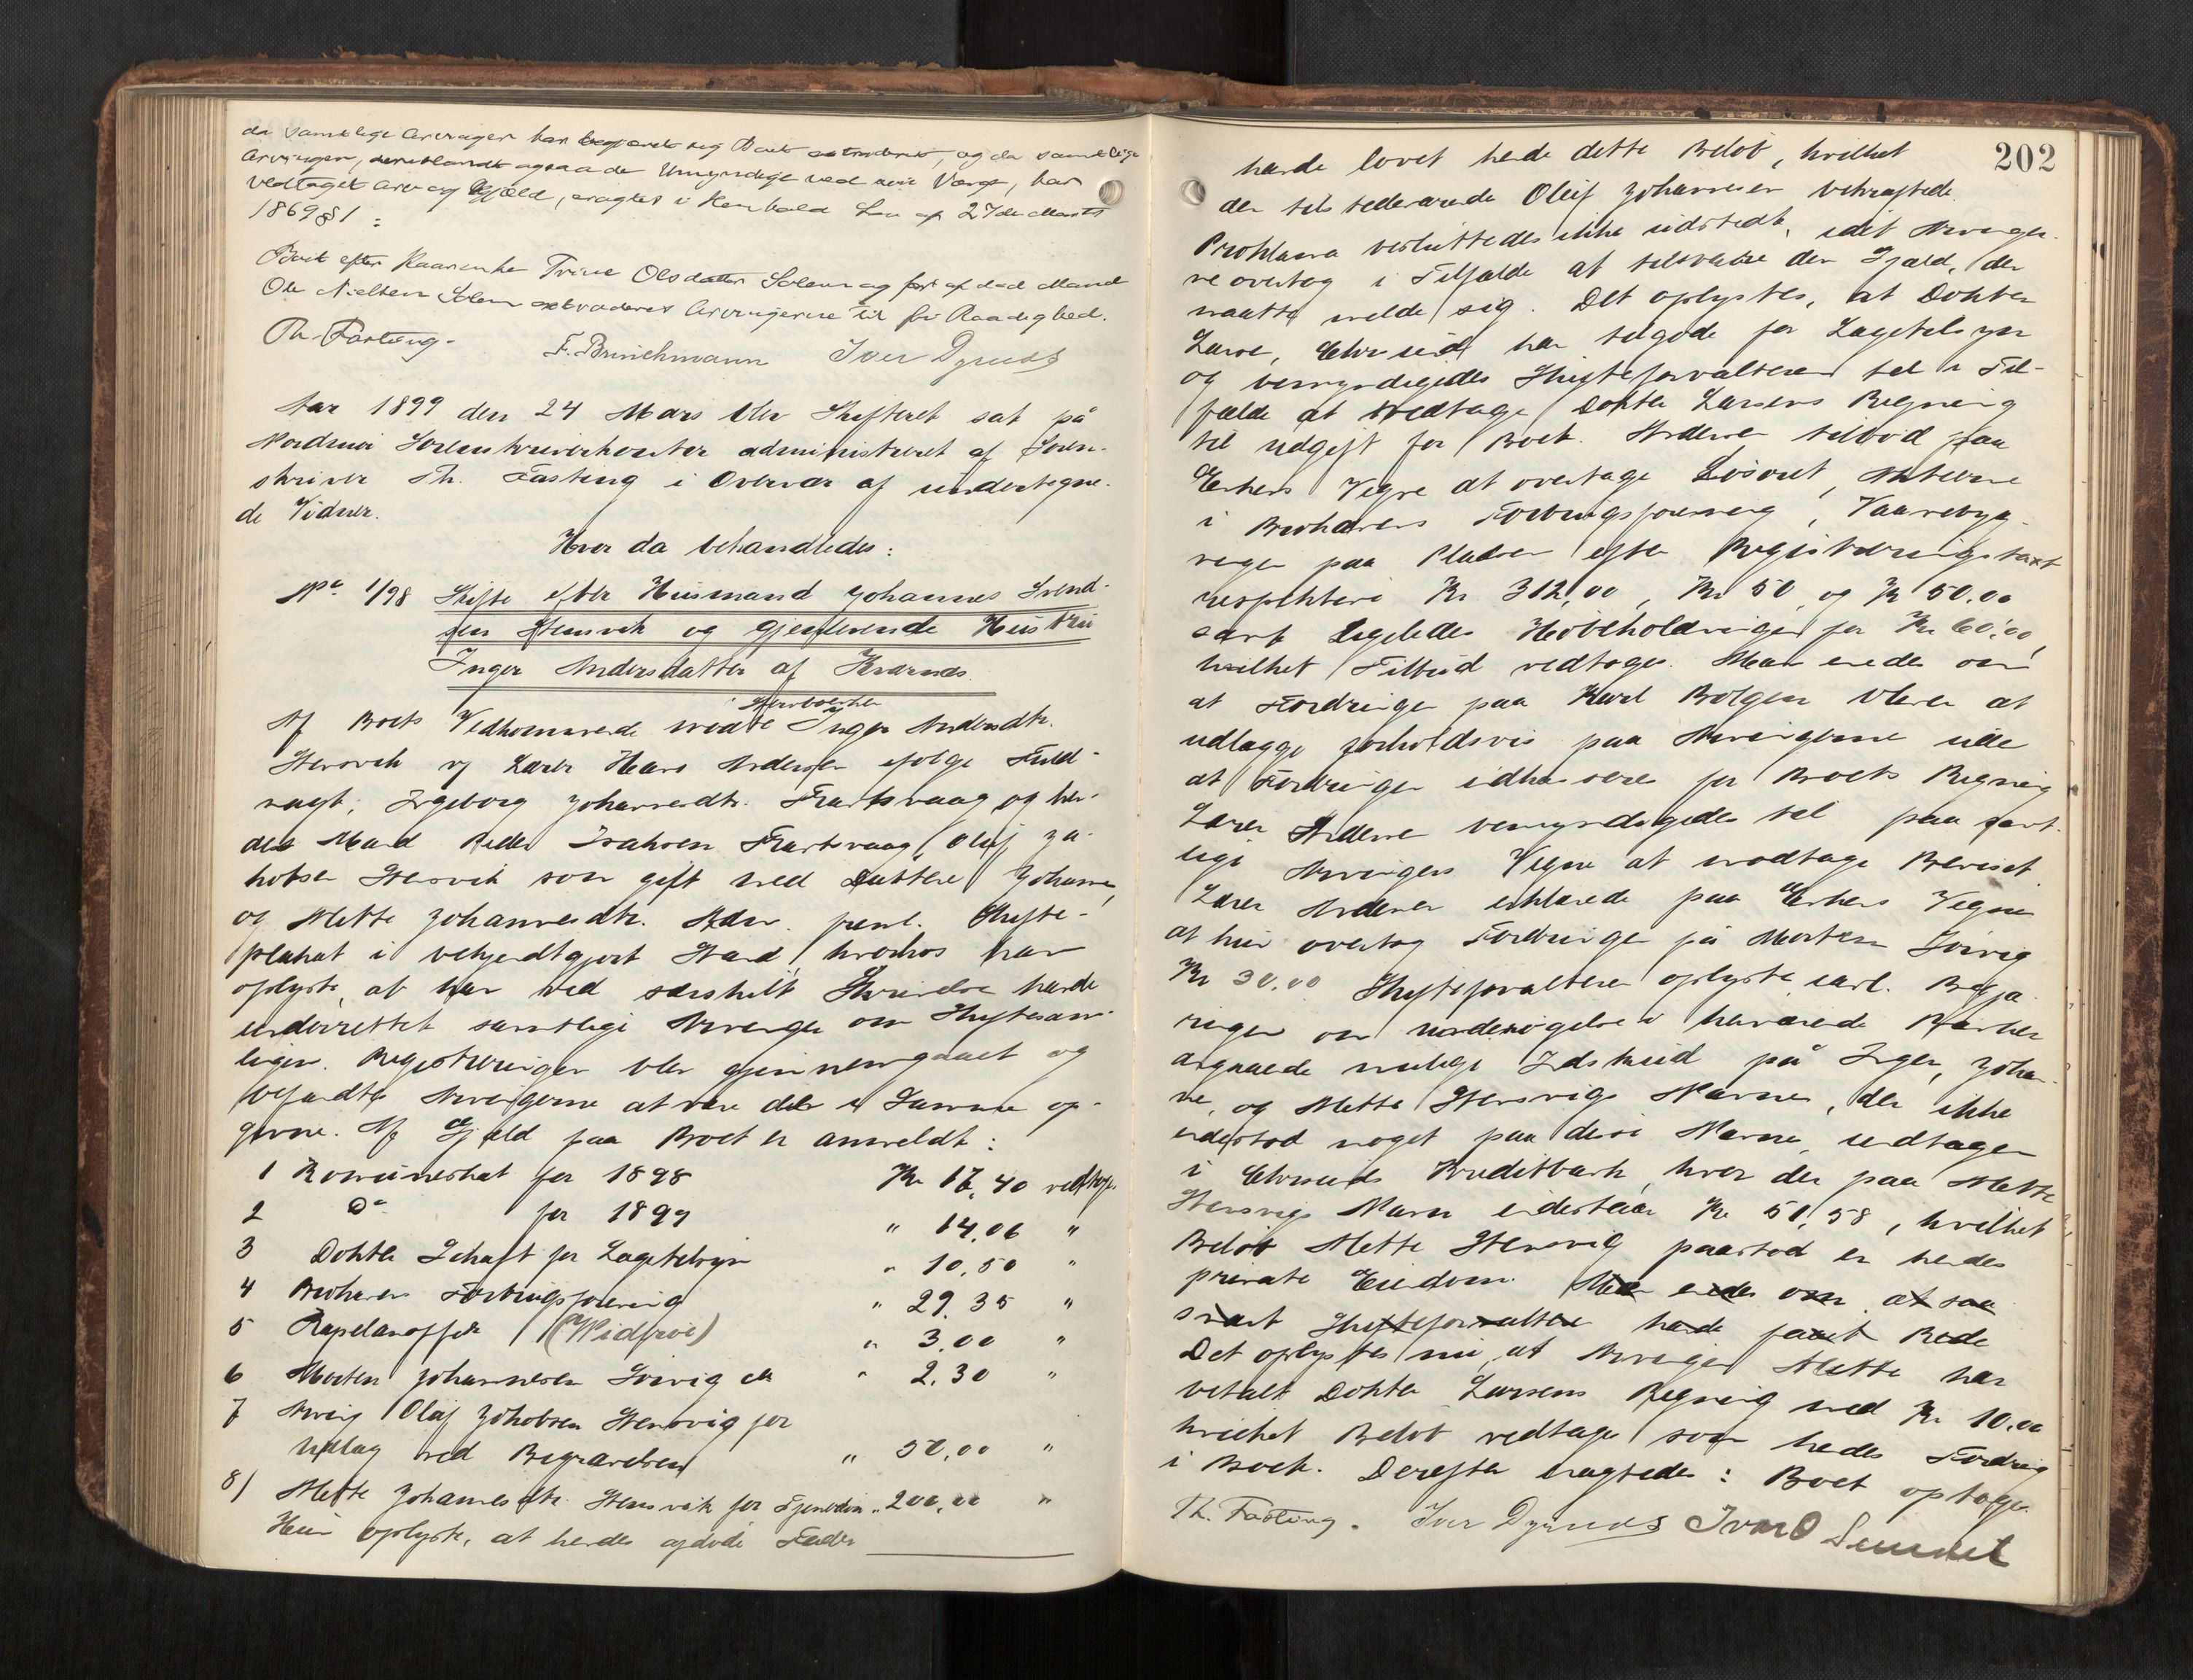 da samtlige Arvinger har begjæret sig Boet extraderet, og da samtlige
Arvinger, deriblandt ogsaa de Umyndige ved sin Værge, har
vedtaget Arv og Gjæld, eragtes i Henhold Lov af 27de Marts
1869 § 1:
Boet efter Kaarenke Trine Olsdatter Solem og før afdød Mand
Ole Nielsen Solem extraderes Arvingerne til fri Raadighed.
Th. Fasting. F. Brinchmann Iver Dyrnes
Aar 1899 den 24 Mars blev Skifteret sat på
Nordmør Sorenskriverkontor administreret af Soren-
skriver Th. Fasting i Overvær af undertegne-
de Vidner.
Hvor da behandledes:
No. 1/98 Skifte efter Husmand Johannes Svend-
sen Stensvik og gjenlevende Hustru
Inger Andersdatter af Kværnes.
Af Boets Vedkommende mødte Inger Andersdtr.
Stensvik og Lærer Hans Andersen ifølge Fuld-
magt, Ingeborg Johannesdtr. Frostvaag og hen-
des Mand Peder Isaksen Frostvaag, Oluf Ja-
kobsen Stensvik som gift med Datteren Johanna,
og Mette Johannesdtr. Adm. freml. Skifte-
plakat i bekjendtgjort Stand, hvorhos han
oplyste, at han ved særskilt Skrivelse havde
underrettet samtlige Arvinger om Skiftesam-
lingen. Registreringen blev gjennemgaaet og
befandtes Arvingerne at være de i Samme op-
givne. Af Gjæld paa Boet er anmeldt:
1 Kommuneskat for 1898 Kr 17,40 vedtoges
2 Do for 1899 " 14,06 "
3 Dokter Schaft for Lægetilsyn " 10,50 "
4 Bruhavns Forbrugsforening " 29,35 "
5 Kapelanoffer (Widsvei) " 3,00 "
6 Morten Johannesen Soivig " 2,30 "
7 Arving Oluf Jakobsen Stensvig for
Udlæg ved Begravelsen " 50,00 "
8) Mette Johannesdtr. Stensvik for Tjenestløn " 200,00 "
Hun oplyste, at hendes afdøde Fader
202
havde lovet hende dette Beløb, hvilket
den tilstedeværende Oluf Johannesen bekræftede.
Proklama besluttedes ikke udstedt, idet Arvinger-
ne overtog i Tilfælde at tilsvare den Gjæld, der
maatte melde sig. Det oplystes, at Dokter
Larsen, Chrsund har tilgode for Lægetilsyn
og bemyndigedes Skifteforvalteren til i Til-
fælde at vedtage Dokter Larsens Regning
til udgift for Boet. Andersen tilbød paa
Enkens Vegne at overtage Løsøret, Aktierne
i Bruhavns Forbrugsforening, Vaaningsbyg-
ningen paa Pladsen efter Registreringstaxt
respektive Kr. 312,00, Kr 50 og Kr 50.00
samt ligeledes Høbeholdningen for Kr 60,00,
hvilket Tilbud vedtoges. Man enedes om
at Fordringen paa Karl Bolgen bliver at
udlægge forholdsvis paa Arvingerne uden
at Fordringen inddrives for Boets Regning
Lærer Andersen bemyndigedes til paa samt-
lige Arvingers Vegne at modtage Beviset.
Lærer Andersen erklærede paa Enkens Vegne
at hun overtog Fordringen på Morten Soivig
Kr 30.00 Skifteforvalteren oplyste ianl. Begjæ-
ringen om undersøgelse i herværende Banker
angaaende mulige Indskud på Inger, Johan-
ne, og Mette Stensvigs Navne, der ikke
indestod noget paa disse Navne, undtagen
i Chrsunds Kreditbank, hvor der paa Mette
Stensvigs Navn indestaar Kr 51,58, hvilket
Beløb Mette Stensvig paastod er hendes
private Eiendom. Man enedes om at saa
snart Skifteforvalteren havde faaet Rede
Det oplystes nu, at Arvingen Mette har
betalt Dokter Larsens Regning med Kr 10,00
hvilket Beløb vedtoges som hendes Fordring
i Boet. Derefter eragtedes: Boet optages.
Th. Fasting. Iver Dyrnes Ivar O Sunnet